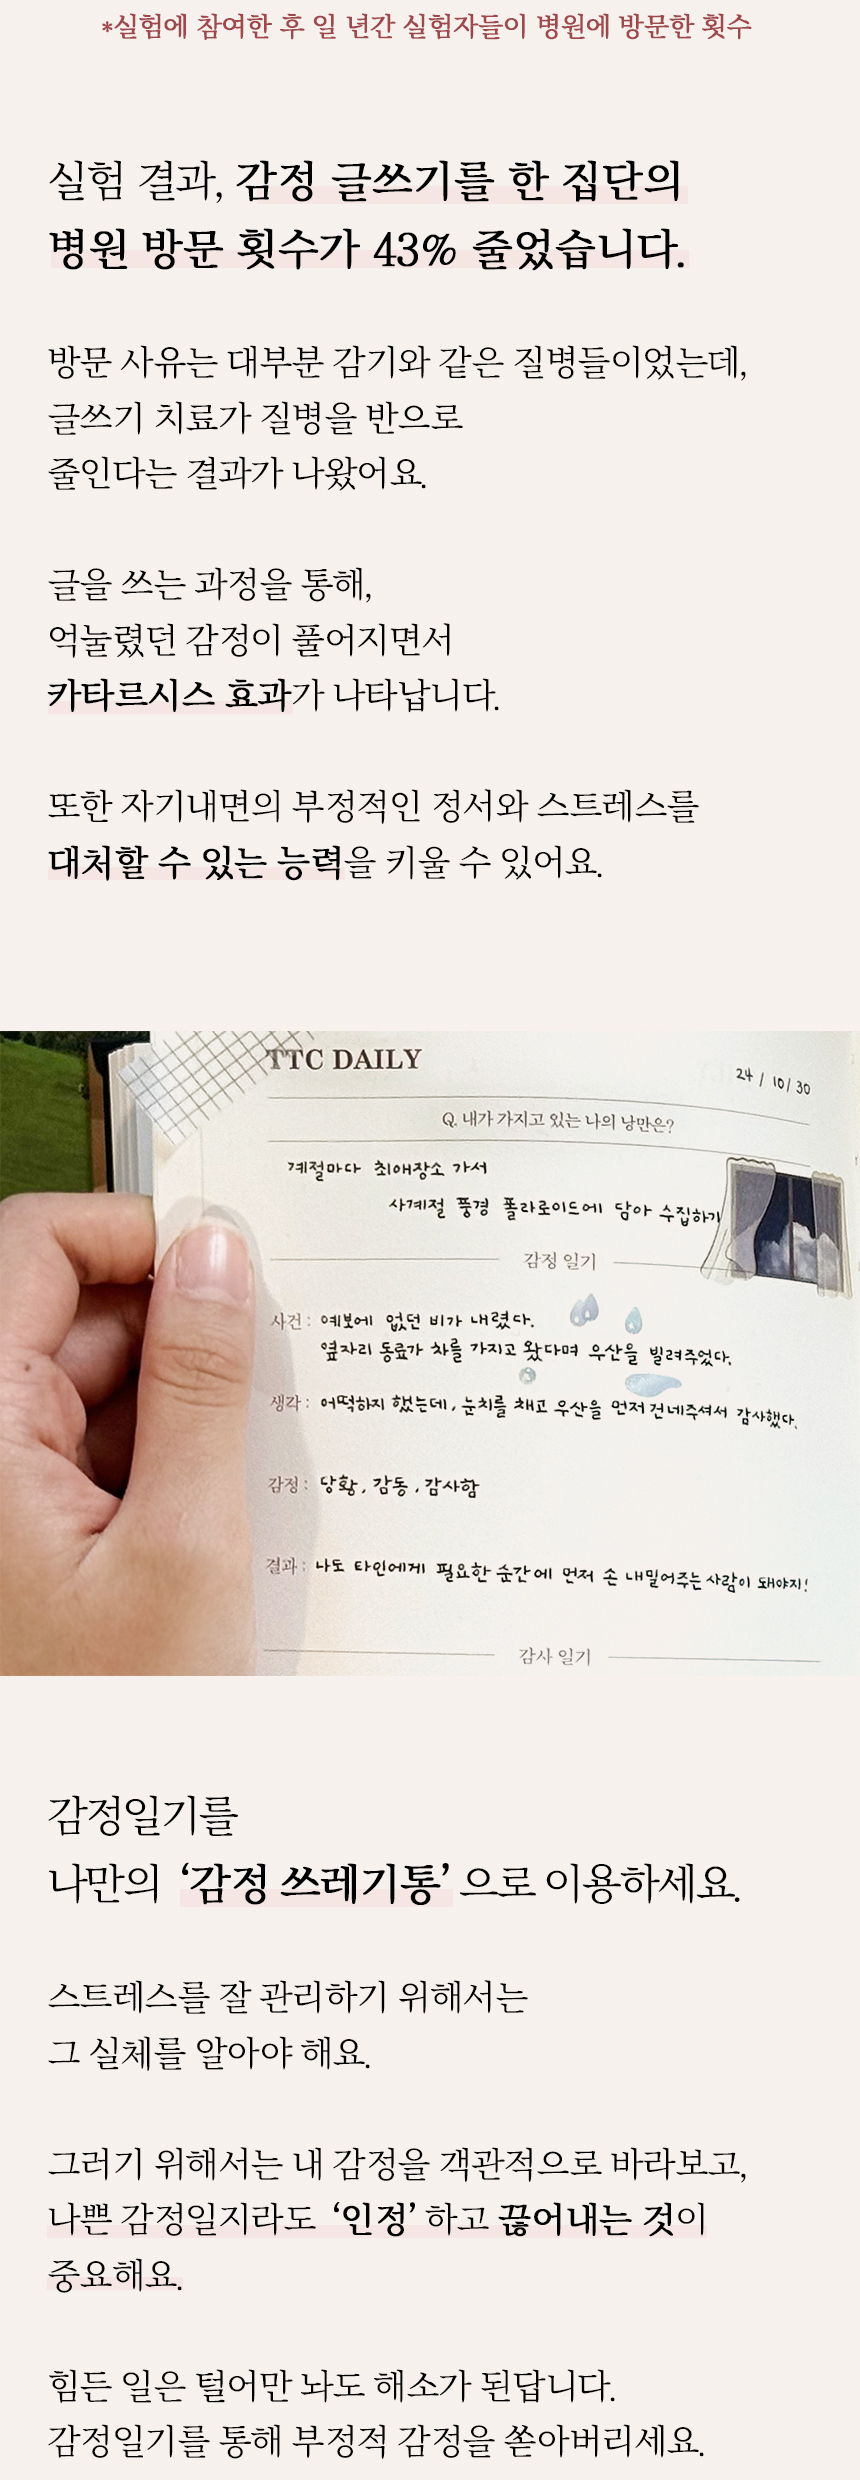 *실험에 참여한 후 일 년간 실험자들이 병원에 방문한 횟수
실험 결과, 감정 글쓰기를 한 집단의
병원 방문 횟수가 43% 줄었습니다.
방문 사유는 대부분 감기와 같은 질병들이었는데,
글쓰기 치료가 질병을 반으로
줄인다는 결과가 나왔어요.
글을 쓰는 과정을 통해,
억눌렸던 감정이 풀어지면서
카타르시스 효과가 나타납니다.
또한 자기내면의 부정적인 정서와 스트레스를
대처할 수 있는 능력을 키울 수 있어요.
TTC DAILY
24 / 10 / 30
Q. 내가 가지고 있는 나의 낭만은?
계절마다 최애장소 가서
사계절 풍경 폴라로이드에 담아 수집하기
감정 일기
사건 : 예보에 없던 비가 내렸다.
옆자리 동료가 차를 가지고 왔다며 우산을 빌려주었다.
생각 : 어떡하지 했는데, 눈치를 채고 우산을 먼저 건네주셔서 감사했다.
감정 : 당황, 감동, 감사함
결과 : 나도 타인에게 필요한 순간에 먼저 손 내밀어주는 사람이 돼야지!
감사 일기
감정일기를
나만의 ‘감정 쓰레기통’ 으로 이용하세요.
스트레스를 잘 관리하기 위해서는
그 실체를 알아야 해요.
그러기 위해서는 내 감정을 객관적으로 바라보고,
나쁜 감정일지라도 ‘인정’ 하고 끊어내는 것이
중요해요.
힘든 일은 털어만 놔도 해소가 된답니다.
감정일기를 통해 부정적 감정을 쏟아버리세요.